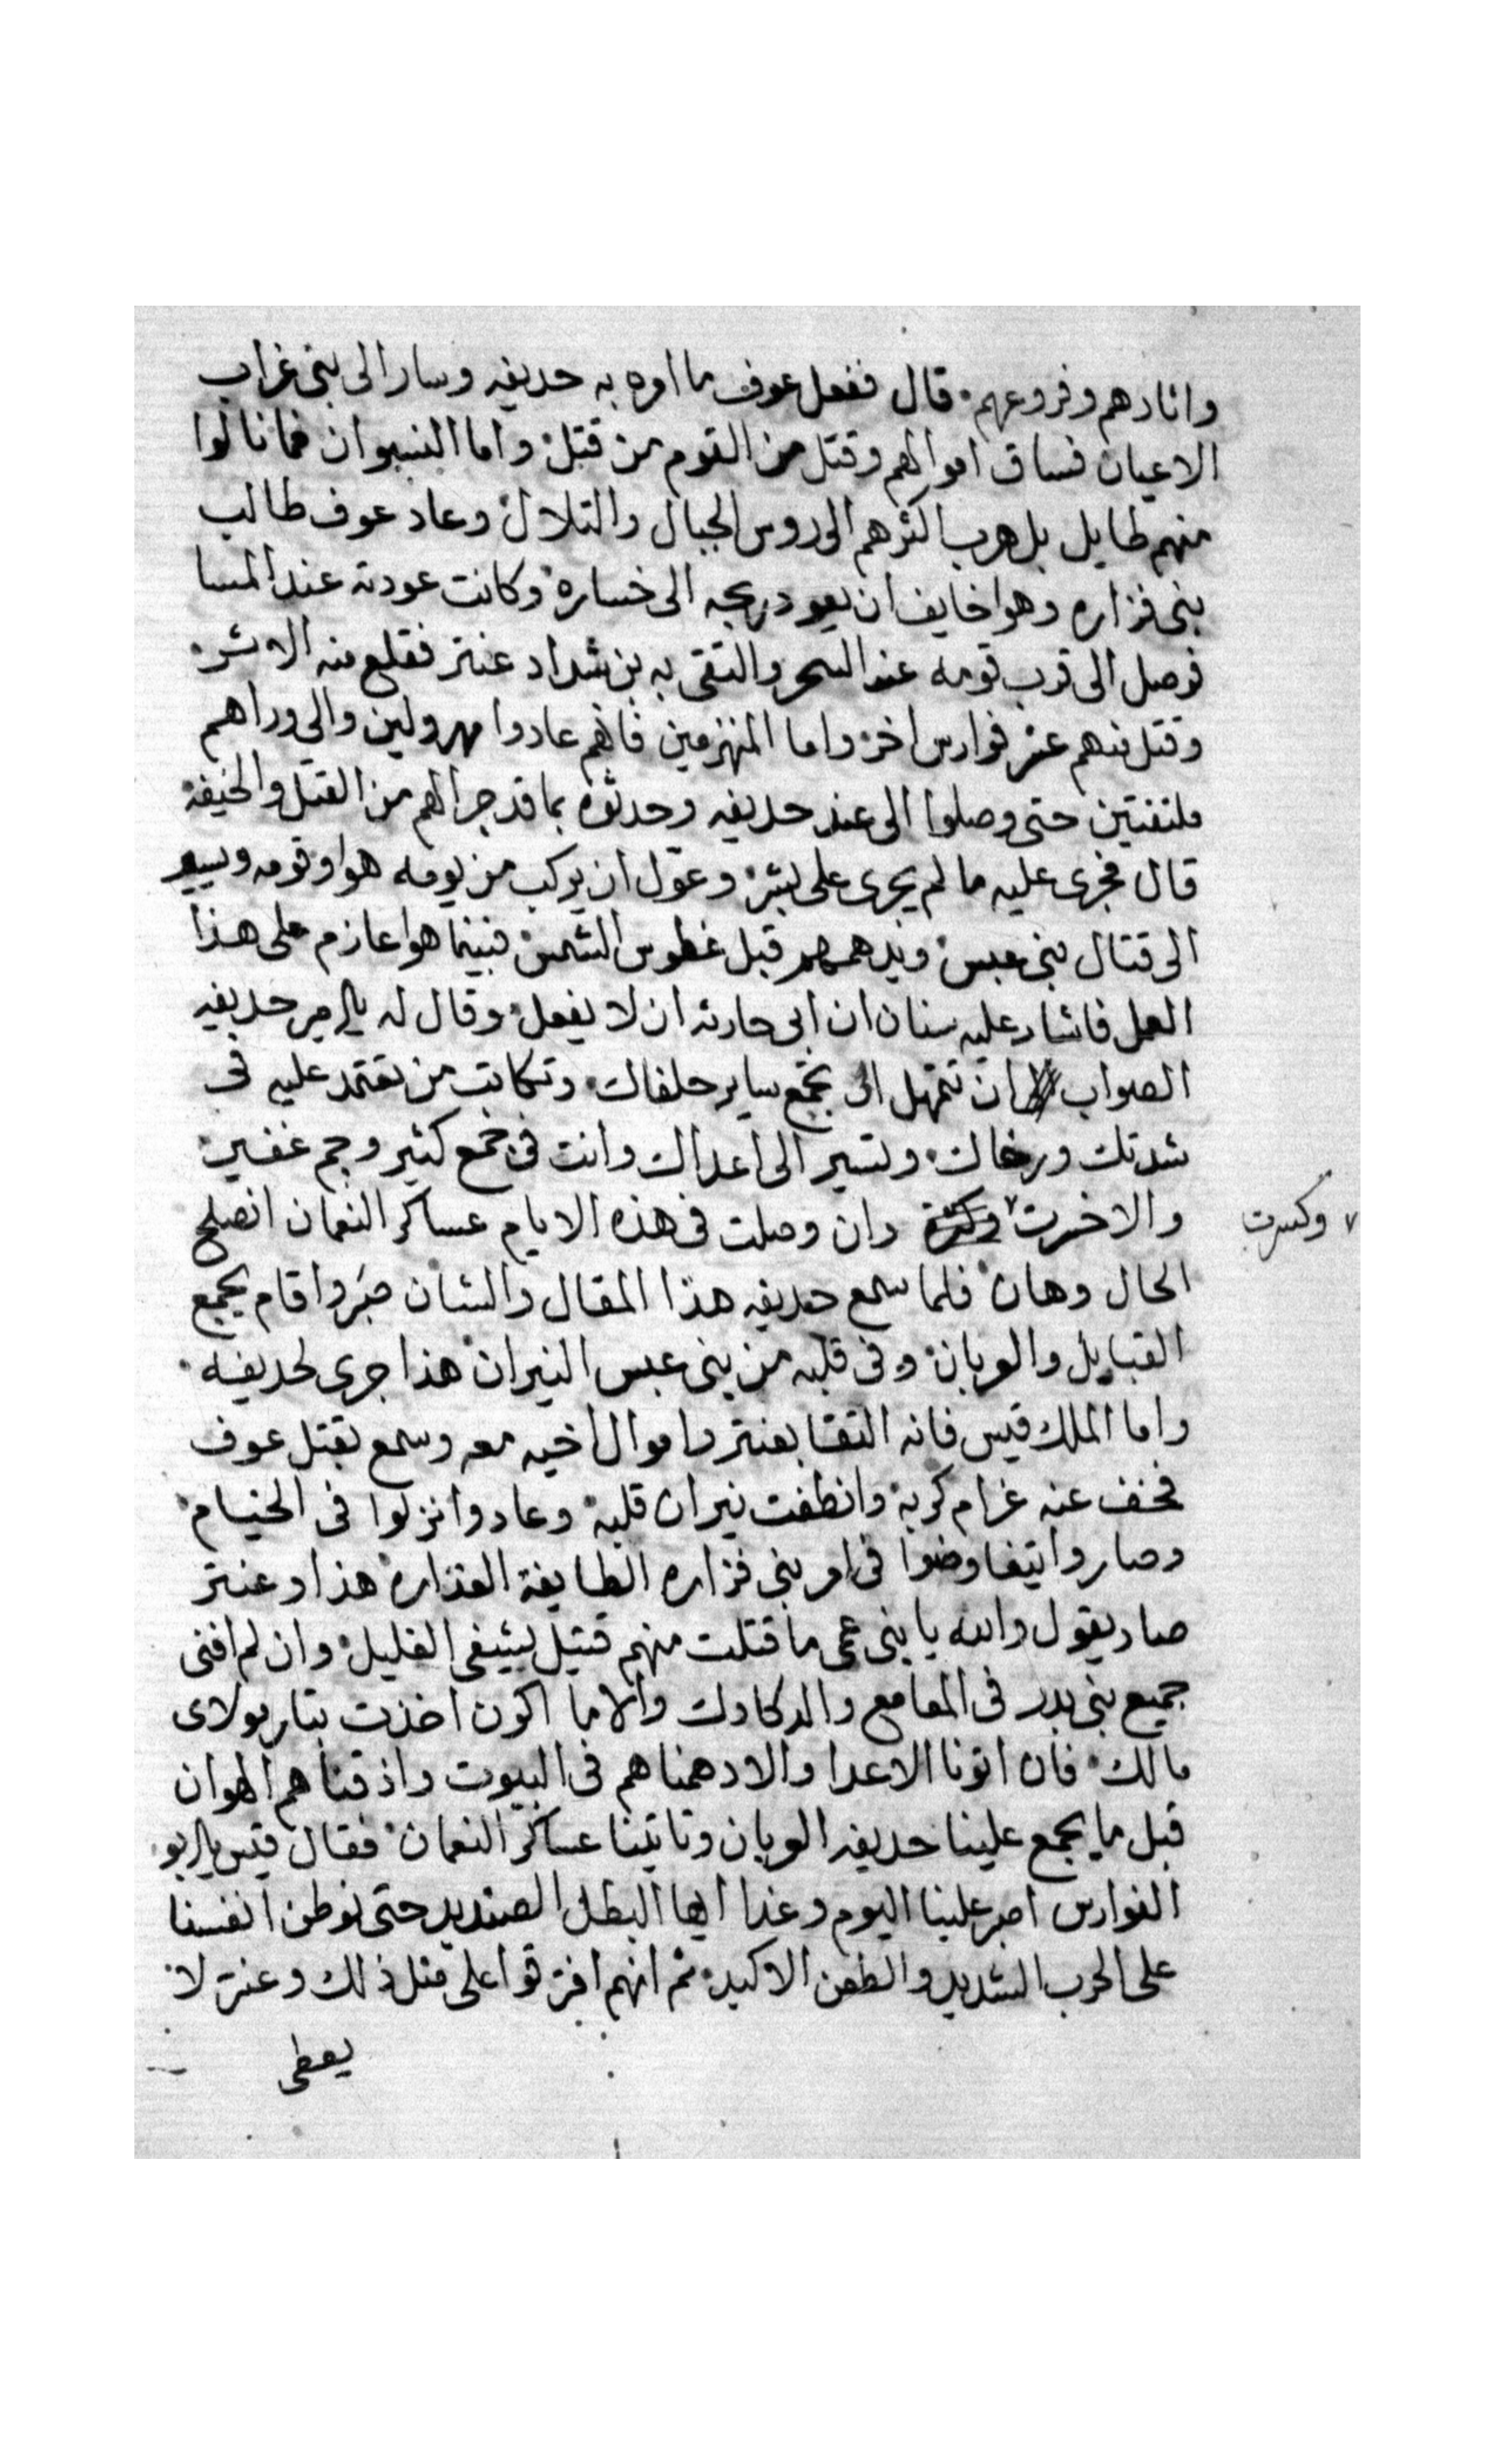 واثارهم وفروعهم. قال ففعل عوف ما امره به حديفه وسار الى بنى غراب
الاعيان فساق اموالهم وقتل من القوم من قتل. واما النسوان فما نالوا
منهم طايل بل هرب اكثرهم الى روس الجبال والتلال. وعاد عوف طالب
بنى فزاره وهوا خايف ان يعود ربحه الى خساره. وكانت عودته عند المسا
فوصل الى قرب قومه عند السحر والتقى به بن شداد عنتر فقلع منه الاثر.
وقتل منهم عشر فوارس اخر. واما المنهزمين فانهم عادوا مهرولين والى وراهم
ملتفتين حتى وصلوا الى عند حديفه وحدثوه بما قد جرا لهم من القتل والخيفة.
قال فجرى عليه ما لم يجرى على بشر. وعول ان يركب من يومه هوا وقومه ويسير
الى قتال بنى عبس. ويدهمهم قبل غطوس الشمس. فبينما هوا عازم على هذا
العمل فاشار عليه سنان ان ابى حارثه ان لا يفعل. وقال له يالامير حديفه
الصواب ان تتمهل الى تجمع ساير حلفاك. وتكاتب من تعتمد عليه فى
شدتك ورخاك. وتسير الى اعداك وانت فى جمع كثير وجم غفير.
والاخرت ٧ وان وصلت فى هذه الايام عساكر النعمان انصلح
٧ وكسرت
الحال وهان. فلما سمع حديفه هذا المقال والشان صبر واقام يجمع
القبايل والعربان. وفى قلبه من بنى عبس النيران. هذا جرى لحديفه.
واما الملك قيس فانه التقا بعنتر واموال اخيه معه وسمع بقتل عوف
فخف عنه غرام كربه. وانطفت نيران قلبه. وعادوا نزلوا فى الخيام.
وصاروا يتفاوضوا فى امر بنى فزاره الطايفة الغداره. هذا وعنتر
صار يقول والله يا بنى عمى ما قتلت منهم قتيل يشفى الغليل. وان لم افنى
جميع بنى بدر فى المعامع والدكادك والا ما اكون اخذت بتار مولاى
مالك. فان اتونا الاعدا والا دهمناهم فى البيوت واذقناهم الهوان
قبل ما يجمع علينا حديفه العربان وتاتينا عساكر النعمان. فقال قيس يابو
الفوارس اصبر علينا اليوم وغدا ايها البطل الصنديد حتى نوطن انفسنا
على الحرب الشديد والطعن الاكيد. ثم انهم افترقوا على مثل ذلك وعنتر لا.
يعطى